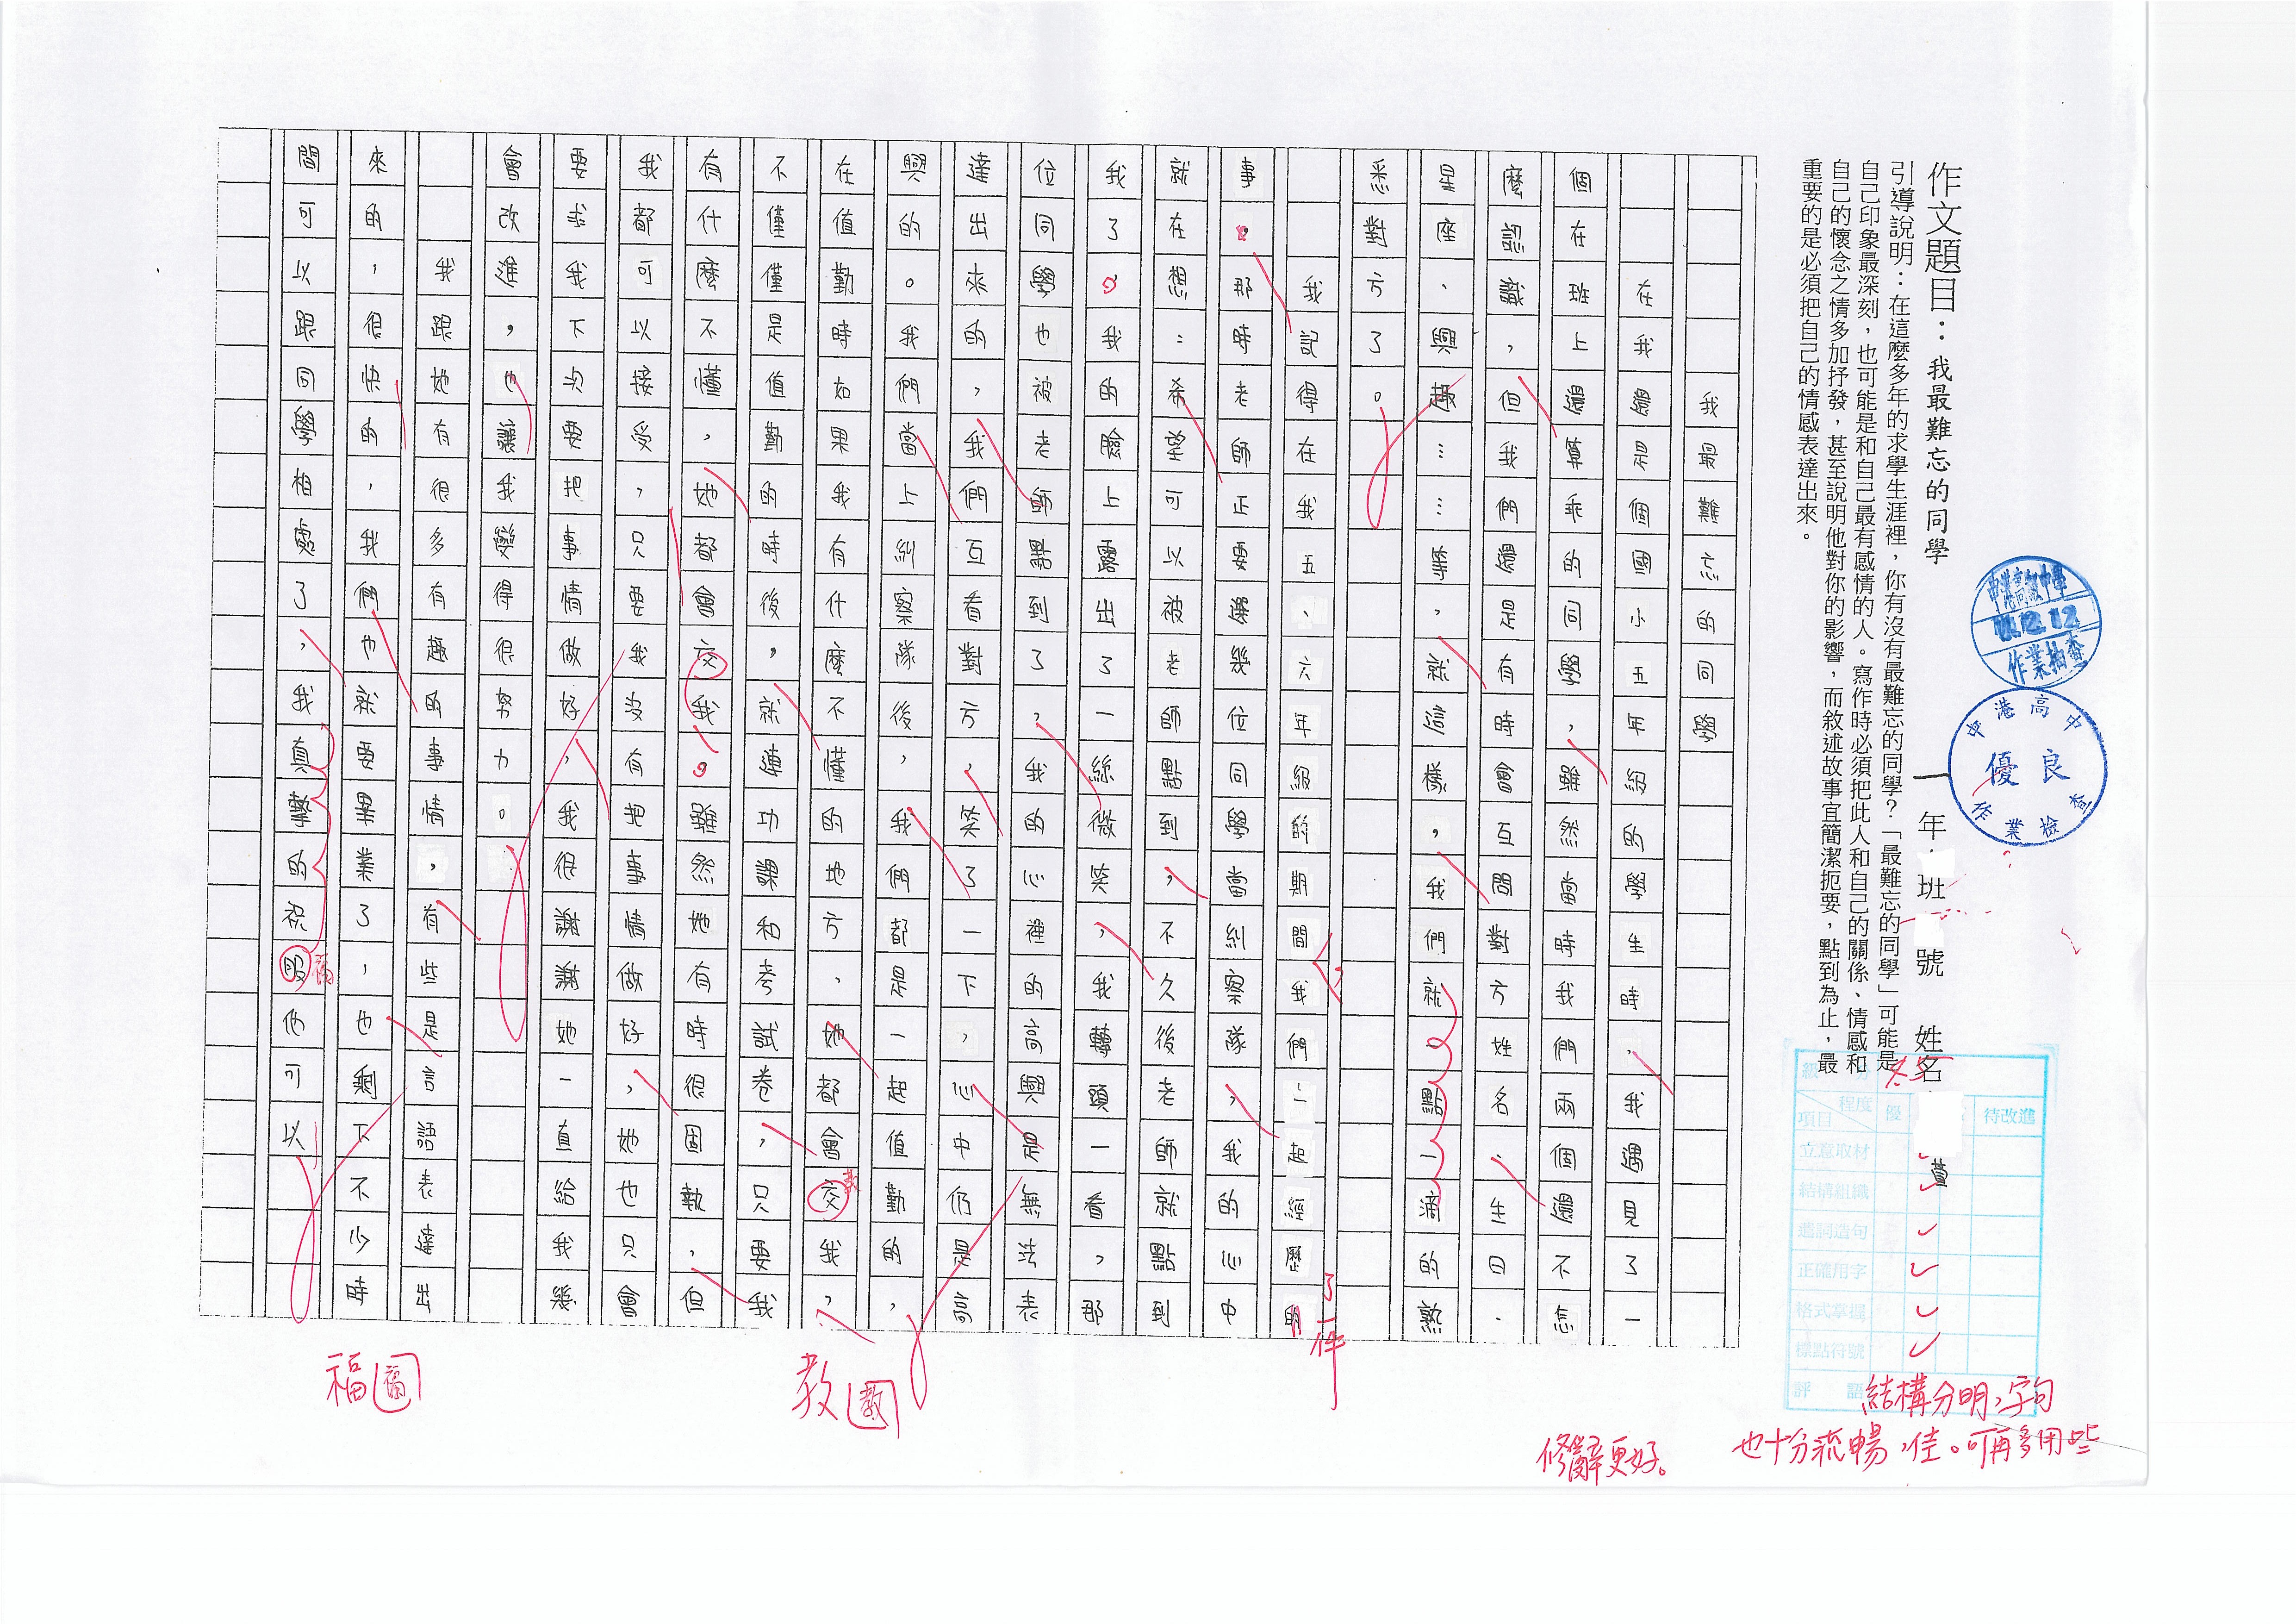 作文題目：我最難忘的同學
一年 班 號 姓名 萱
引導說明：在這麼多年的求學生涯裡，你有沒有最難忘的同學？「最難忘的同學」可能是
自己印象最深刻，也可能是和自己最有感情的人。寫作時必須把此人和自己的關係、情感和
自己的懷念之情多加抒發，甚至說明他對你的影響，而敘述故事宜簡潔扼要，點到為止，最
重要的是必須把自己的情感表達出來。
作業抽查
中港高中
優良
作業檢查
程度
項目
優
待改進
立意取材
結構組織
遣詞造句
正確用字
格式掌握
標點符號
評語
結構分明，字句
也十分流暢，佳。可再多用些
修辭更好。
我最難忘的同學
在我還是個國小五年級的學生時，我遇見了一
個在班上還算乖的同學，雖然當時我們兩個還不怎
麼認識，但我們還是有時會互問對方姓名、生日、
星座、興趣……等，就這樣，我們就一點一滴的熟
悉對方了。
我記得在我五、六年級的期間我們一起經歷的
了一件
事。那時老師正要選幾位同學當糾察隊，我的心中
就在想：希望可以被老師點到，不久後老師就點到
我了。我的臉上露出了一絲微笑，我轉頭一看，那
位同學也被老師點到了，我的心裡的高興是無法表
達出來的，我們互看對方，笑了一下，心中仍是高
興的。我們當上糾察隊後，我們都是一起值勤的，
在值勤時如果我有什麼不懂的地方，她都會交我，
教
不僅僅是值勤的時後，就連功課和考試卷，只要我
有什麼不懂，她都會交我。雖然她有時很固執，但
我都可以接受，只要我沒有把事情做好，她也只會
要求我下次要把事情做好，我很謝謝她一直給我幾
會改進，也讓我變得很努力。
我跟她有很多有趣的事情，有些是言語表達出
來的，很快的，我們也就要畢業了，也剩下不少時
間可以跟同學相處了，我真摯的祝服他可以
福
教
福